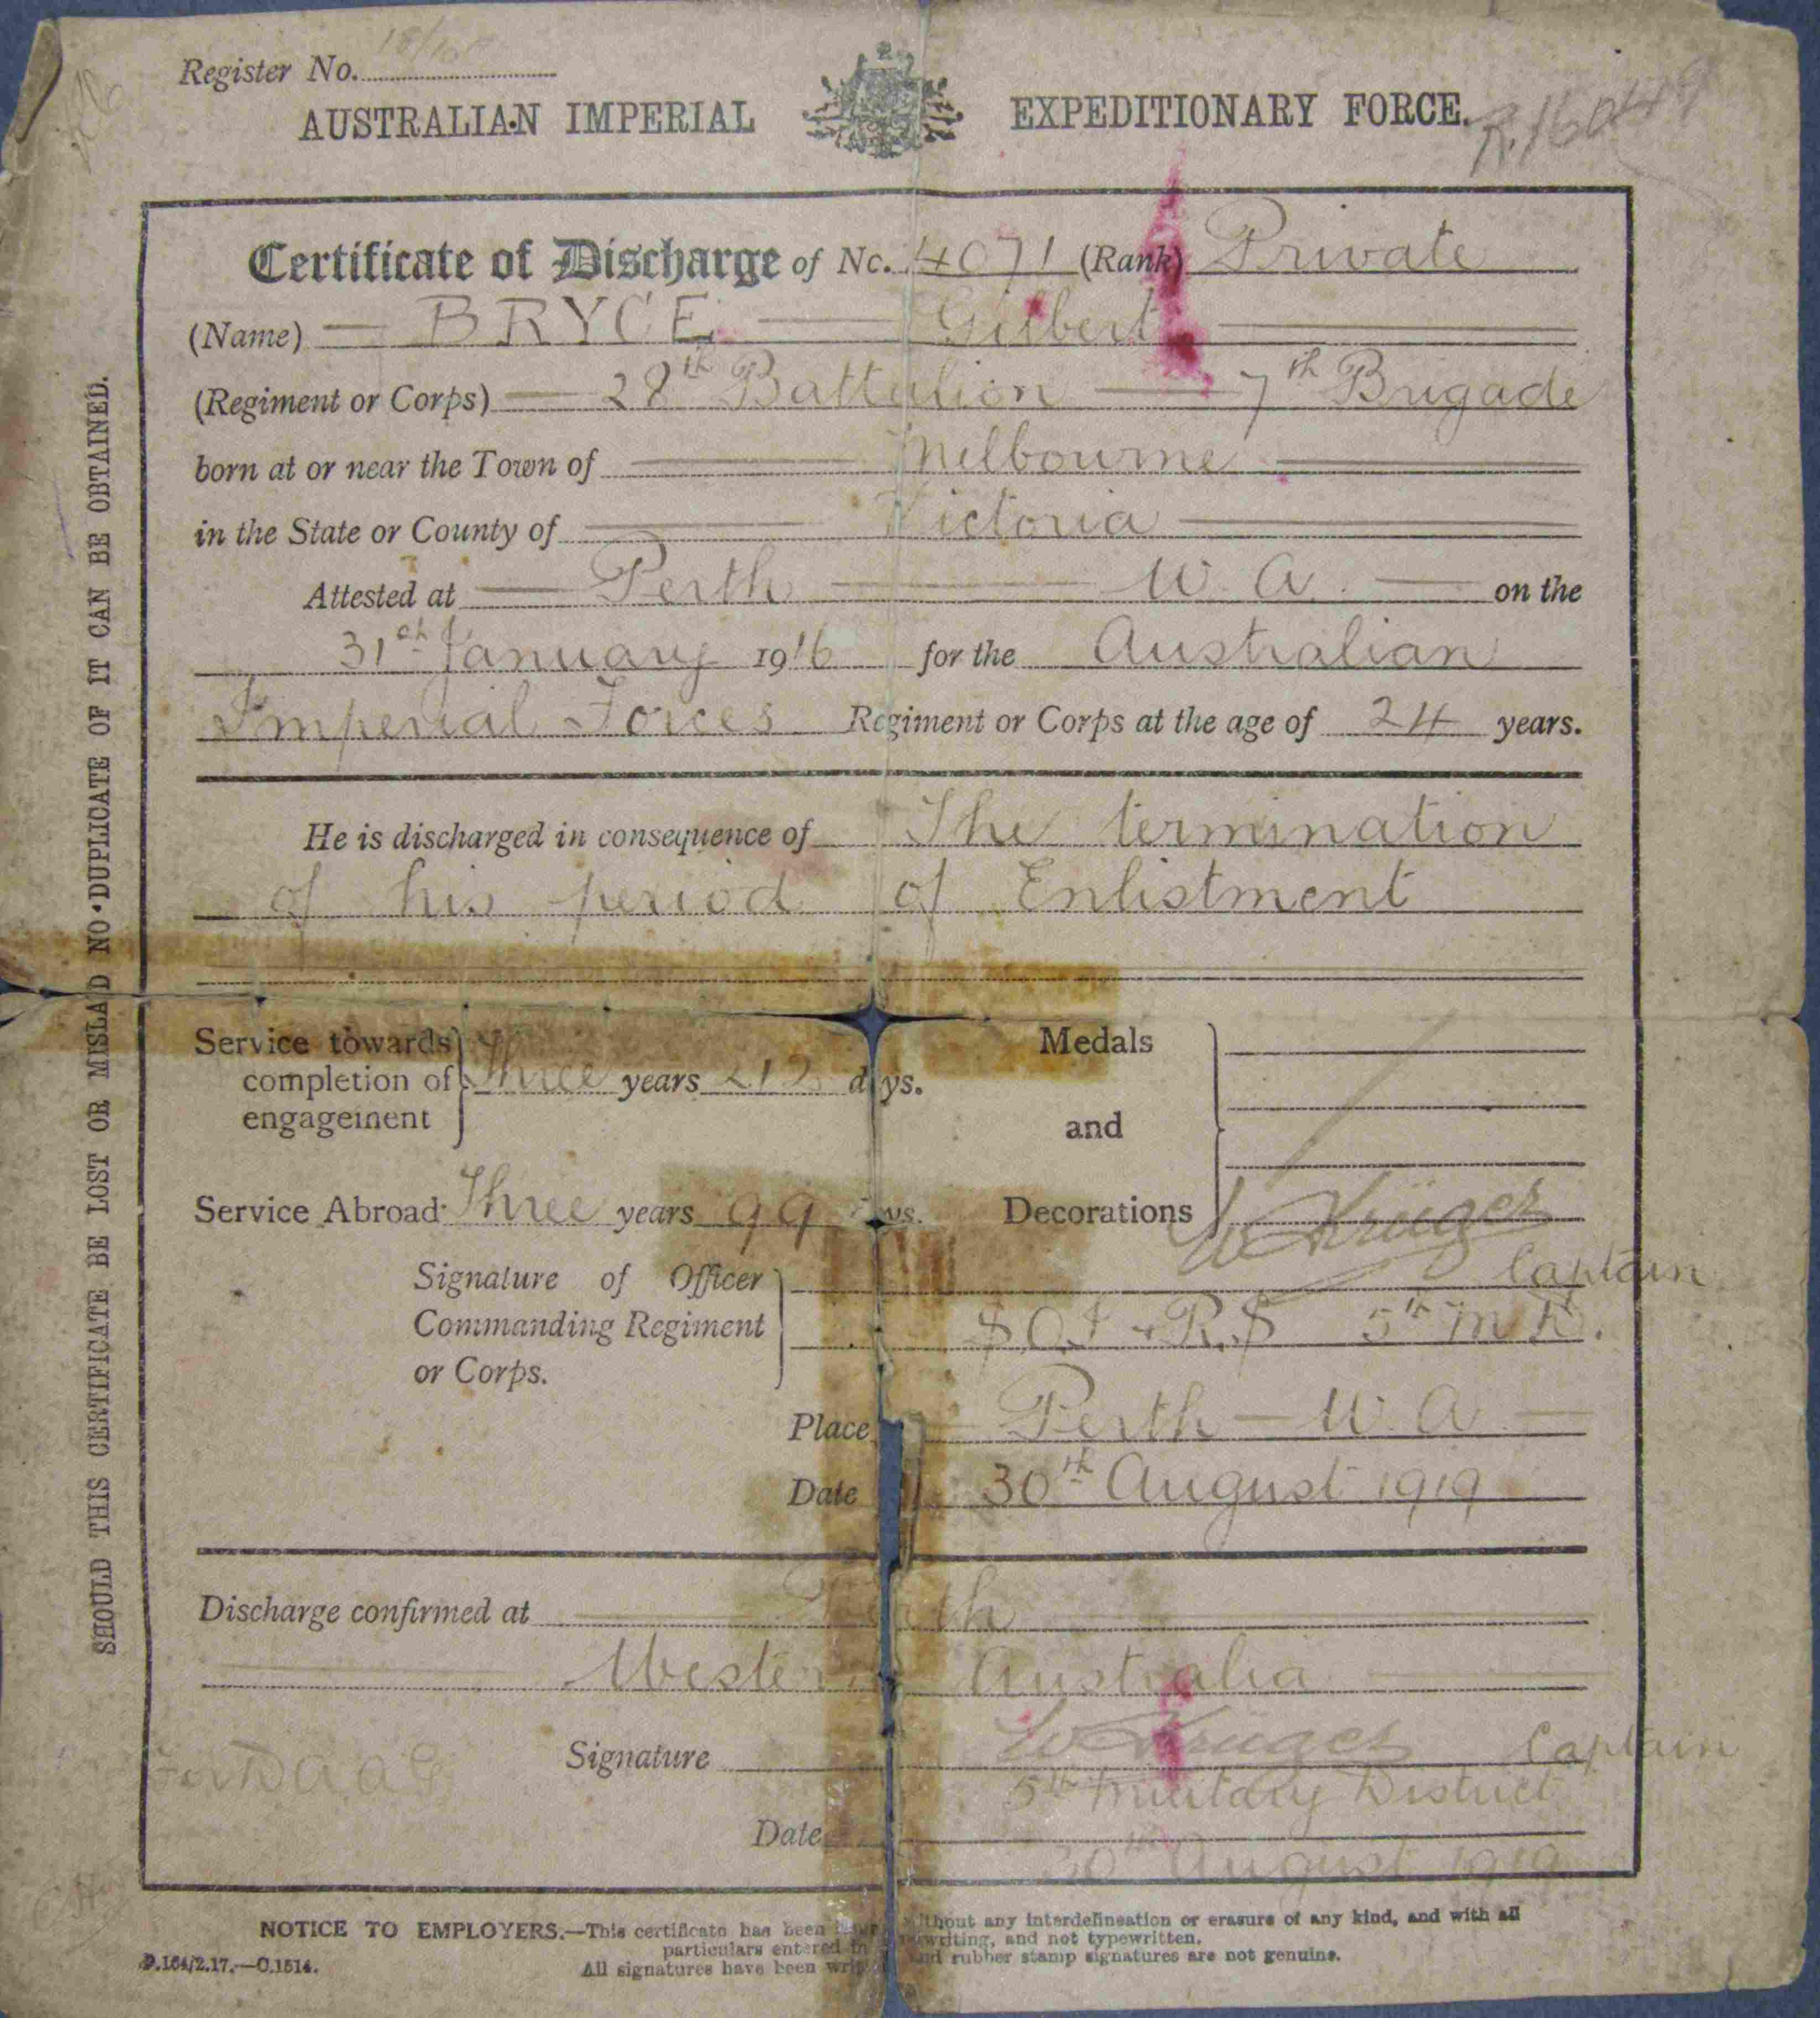 Register No.
AUSTRALIAN IMPERIAL EXPEDITIONARY FORCE.
Certificate of Discharge of No. 4071 (Rank) Private
(Name) BRYCE Gilbert
(Regiment or Corps) 28th Battalion 7th Brigade
born at or near the Town of Melbourne
in the State or County of Victoria
Attested at Perth W. A. on the
31st January 1916 for the Australian
Imperial Forces Regiment or Corps at the age of 24 years.
He is discharged in consequence of The termination
of his period of Enlistment
Service towards completion of engagement Three years 212 days.
Medals and Decorations
Service Abroad Three years 99
Signature of Officer Commanding Regiment or Corps.
W Krüger Captain
5th M D.
Place Perth - W. A.
Date 30th August 1919
Discharge confirmed at Perth
Western Australia
Signature W Krüger Captain
For D A A G
5th Military District
Date 30th August 1919
NOTICE TO EMPLOYERS.—This certificate has been without any interdelineation or erasure of any kind, and with all
particulars entered in and not typewritten.
All signatures have been and rubber stamp signatures are not genuine.
D.164/2.17.—C.1514.
SHOULD THIS CERTIFICATE BE LOST OR MISLAID NO DUPLICATE OF IT CAN BE OBTAINED.